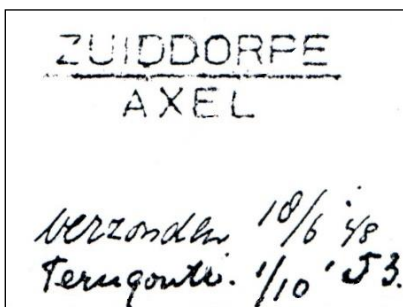 ZUIDDORPE
AXEL
verzonden 18/6 '48
Terugontv. 1/10 '53.